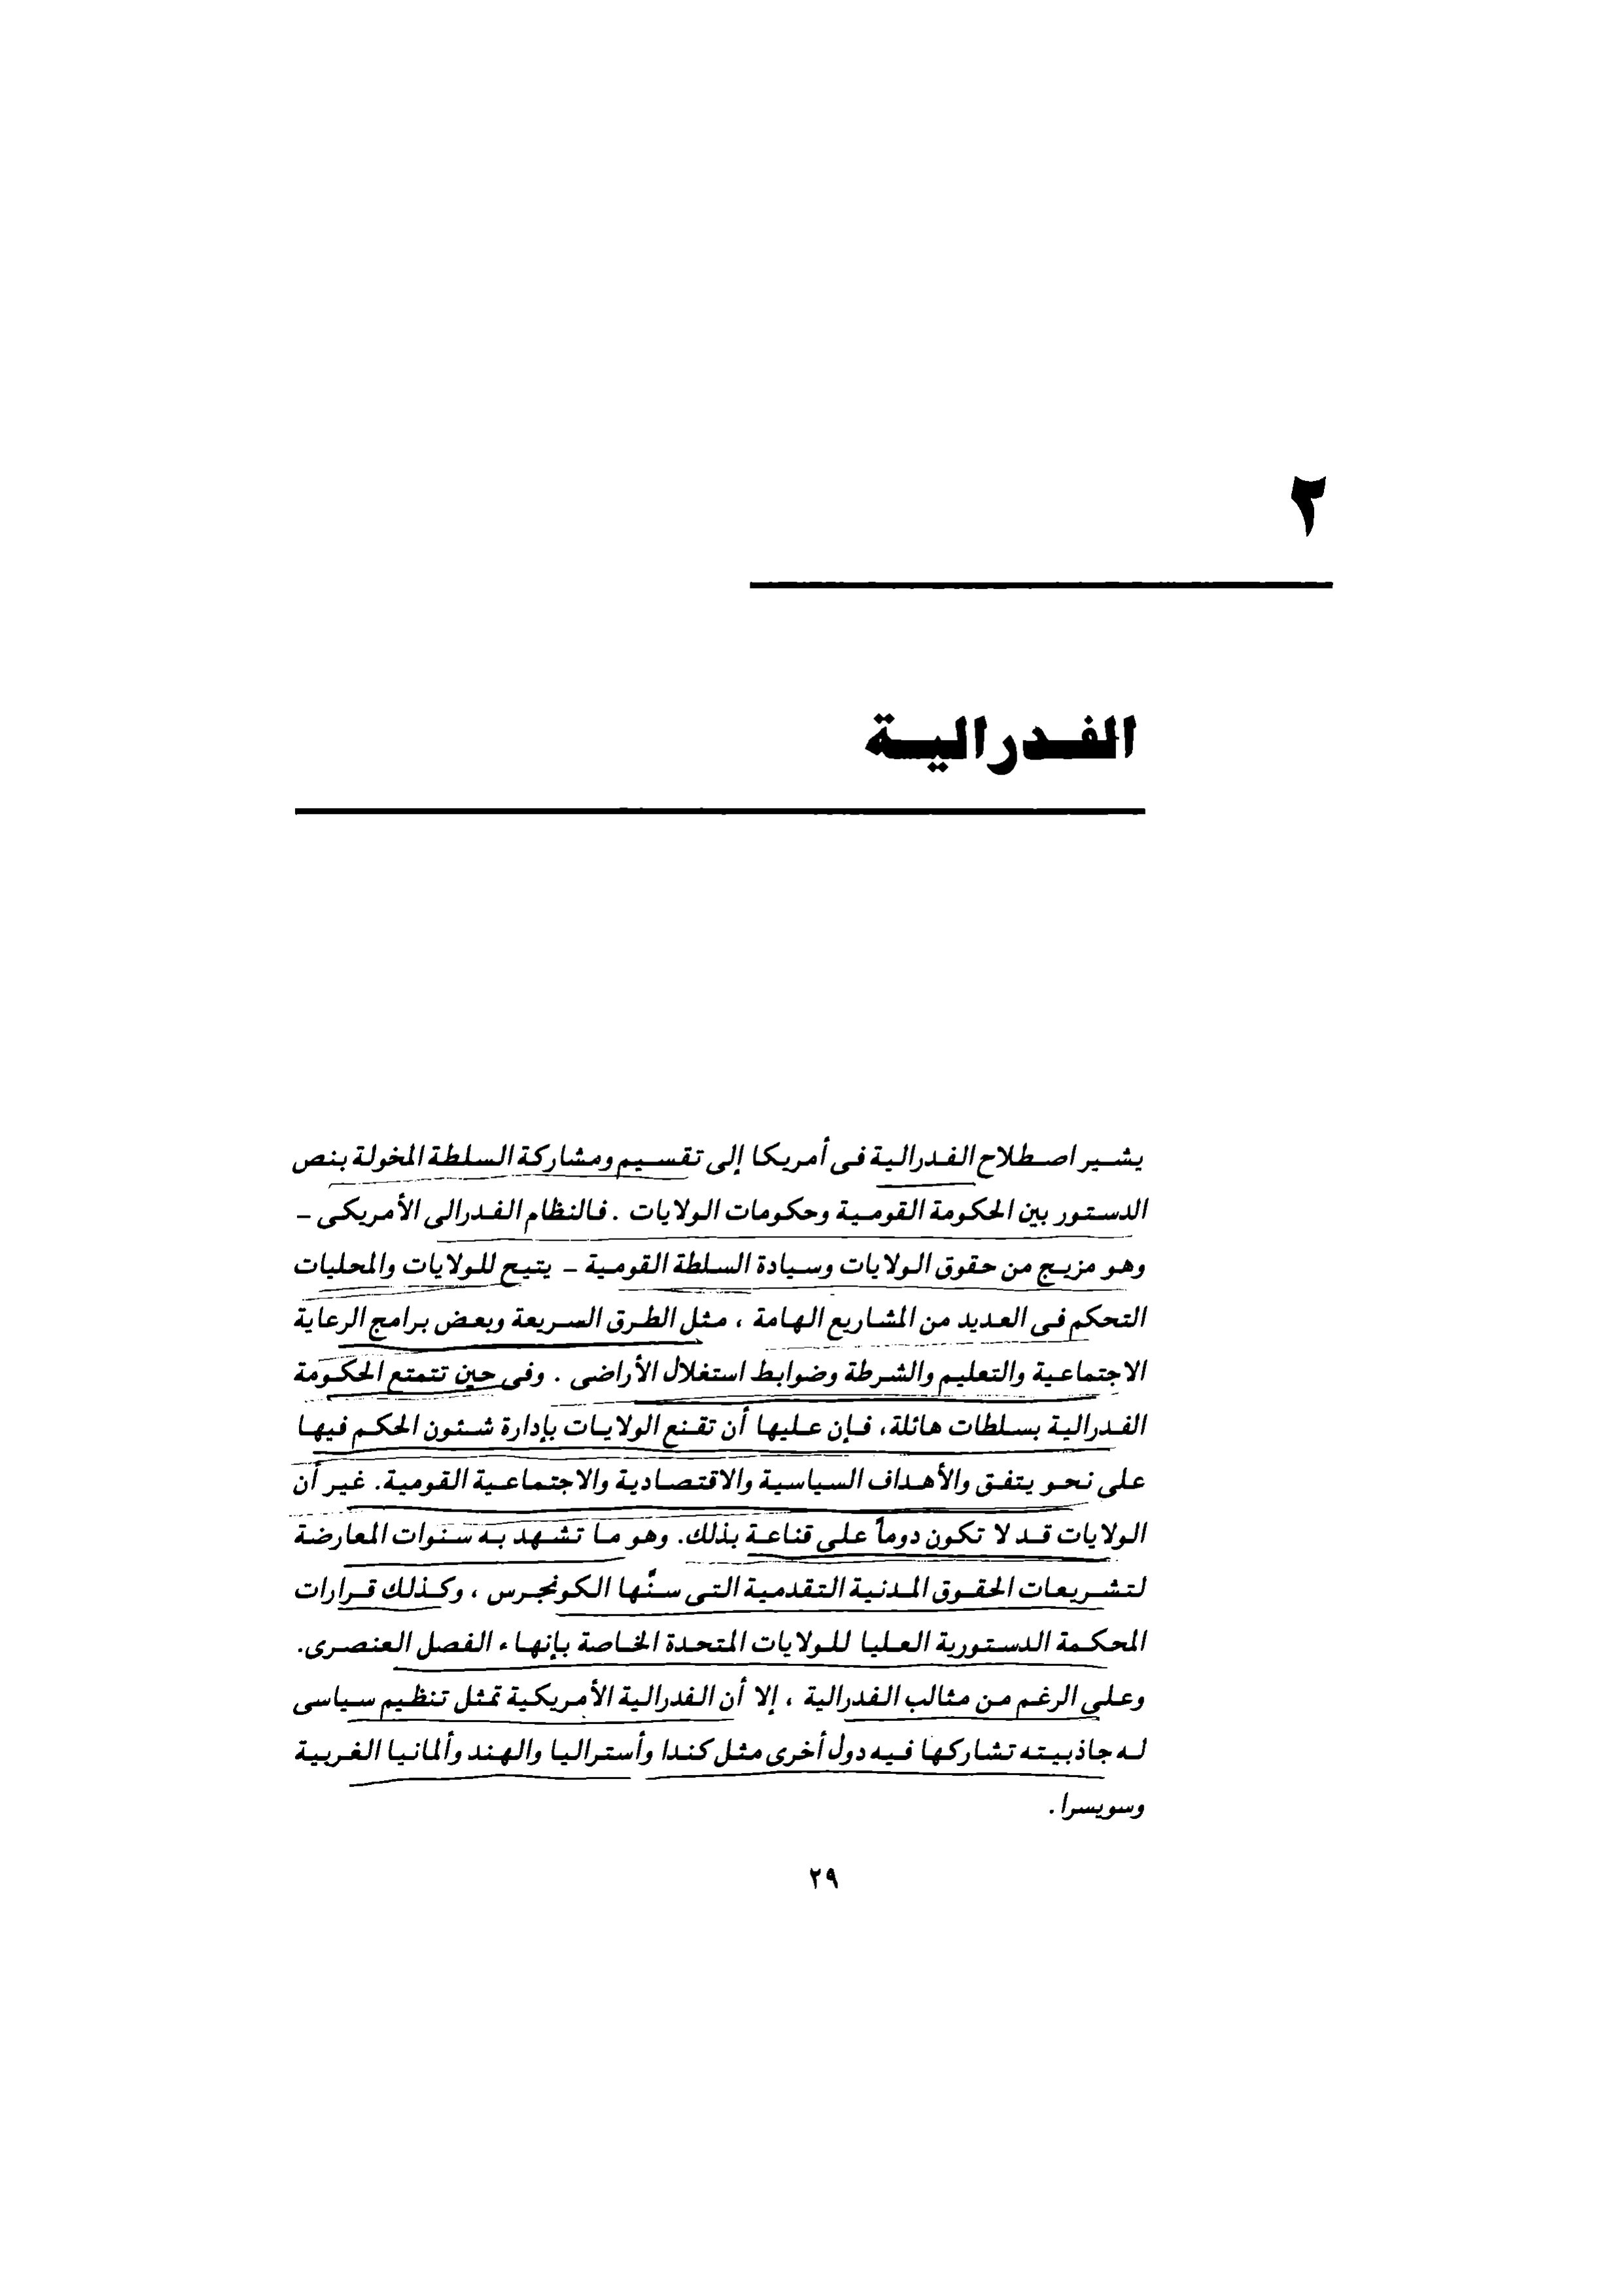 ٢
الفدرالية
يشير اصطلاح الفدرالية فى أمريكا إلى تقسيم ومشاركة السلطة المخولة بنص
الدستور بين الحكومة القومية وحكومات الولايات . فالنظام الفدرالى الأمريكى –
وهو مزيج من حقوق الولايات وسيادة السلطة القومية – يتيح للولايات والمحليات
التحكم فى العديد من المشاريع الهامة ، مثل الطرق السريعة وبعض برامج الرعاية
الاجتماعية والتعليم والشرطة وضوابط استغلال الأراضى . وفى حين تتمتع الحكومة
الفدرالية بسلطات هائلة، فإن عليها أن تقنع الولايات بإدارة شئون الحكم فيها
على نحو يتفق والأهداف السياسية والاقتصادية والاجتماعية القومية. غير أن
الولايات قد لا تكون دوماً على قناعة بذلك. وهو ما تشهد به سنوات المعارضة
لتشريعات الحقوق المدنية التقدمية التى سنَّها الكونجرس ، وكذلك قرارات
المحكمة الدستورية العليا للولايات المتحدة الخاصة بإنهاء الفصل العنصرى.
وعلى الرغم من مثالب الفدرالية ، إلا أن الفدرالية الأمريكية تمثل تنظيم سياسى
له جاذبيته تشاركها فيه دول أخرى مثل كندا وأستراليا والهند وألمانيا الغربية
وسويسرا .
٢٩